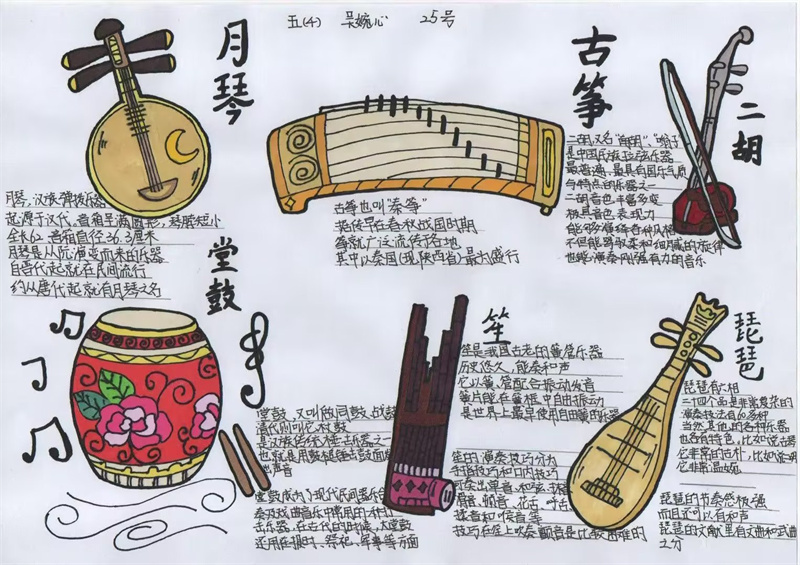 五(4) 吴婉心 25号
月琴
月琴,汉族弹拨乐器
起源于汉代,音箱呈满圆形,琴脖短小
全长62,音箱直径36.3厘米
月琴是从阮演变而来的乐器
自晋代起就在民间流行
约从唐代起就有月琴之名
古筝
古筝也叫"秦筝"
据传早在春秋战国时期
筝就广泛流传各地
其中以秦国(现陕西省)最为盛行
二胡
二胡,又名"南胡"、"嗡子"
是中国民族拉弦乐器
最普遍、最具有国乐气质
与特点的乐器之一
二胡音色丰富多变
极具音色表现力
能够演绎各种风格
不但能够取柔和细腻的旋律
也能演奏刚强有力的音乐
堂鼓
堂鼓,又叫做同鼓、战鼓
清代则叫它杖鼓
是汉族传统打击乐器之一
也就是用鼓槌锤击鼓面
出声音
堂鼓成为了现代民间器乐合
奏及戏曲音乐中常用的一种打
击乐器,在古代的时候,大堂鼓
还用在报时、祭祀、军事等方面
笙
笙是我国古老的簧管乐器
历史悠久,能奏和声
它以簧、管配合振动发音
簧片能在簧框中自由振动
是世界上最早使用自由簧的乐器
笙的演奏技巧分为
手指技巧和口内技巧
可奏出单音、和弦
滑音、颤音、花舌、呼舌
揉音和喉音等
技巧在笙上吹奏颤音是比较困难的
琵琶
琵琶有六相
二十四个品是非常繁茂的
演奏技法有60多种
当然其他的各种乐器
也各有特色,比如说古琴
它非常的古朴,比如说
它非常温婉
琵琶的节奏感极强
而且还可以有和声
琵琶的文献里有文曲和武曲
之分